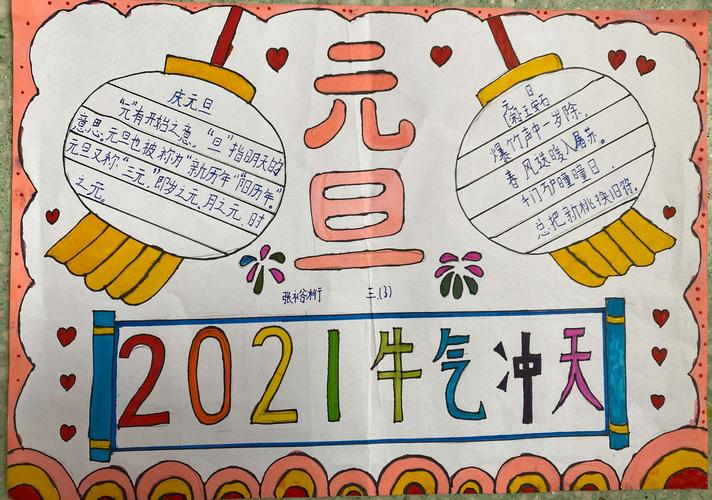 元旦
庆元旦
"元"有开始之意，"旦"指明天的
意思.元旦也被称为"新历年""阳历年".
元旦又称"三元，"即岁之元、月之元、时
之元。
元 日
王安石
爆竹声中一岁除，
春风送暖入屠苏。
千门万户曈曈日.
总把新桃换旧符.
张
三.(3)
2021牛气冲天